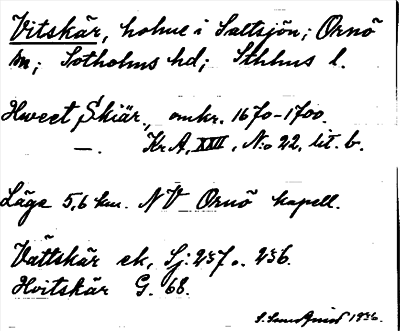 Vitskär, holme i Saltsjön; Ornö
sn; Sotholms hd; Sthlms l.
Hweet Skiär, omkr. 1670-1700.
—. Kr. A, XXII, N:o 22, lit. b.
Läge 5,6 km. NV Ornö kapell.
Vättskär ek, Sj: 237 o. 236.
Hvitskär G. 68.
1936